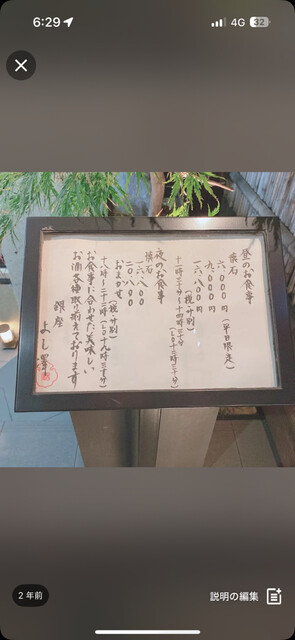 6:29
4G
32
昼のお食事
懐石
六、〇〇〇円(平日限定)
九、〇〇〇円
一六、八〇〇円
(税・サ別)
十一時三十分〜十四時三十分
(L.O十三時三十分)
夜のお食事
懐石
一六、八〇〇
二〇、八〇〇
おまかせ
(税・サ別)
十八時〜二十二時(L.O十九時三十分)
お食事に合わせた美味しい
お酒各種取り揃えております
銀座
よし澤
2 年前
説明の編集